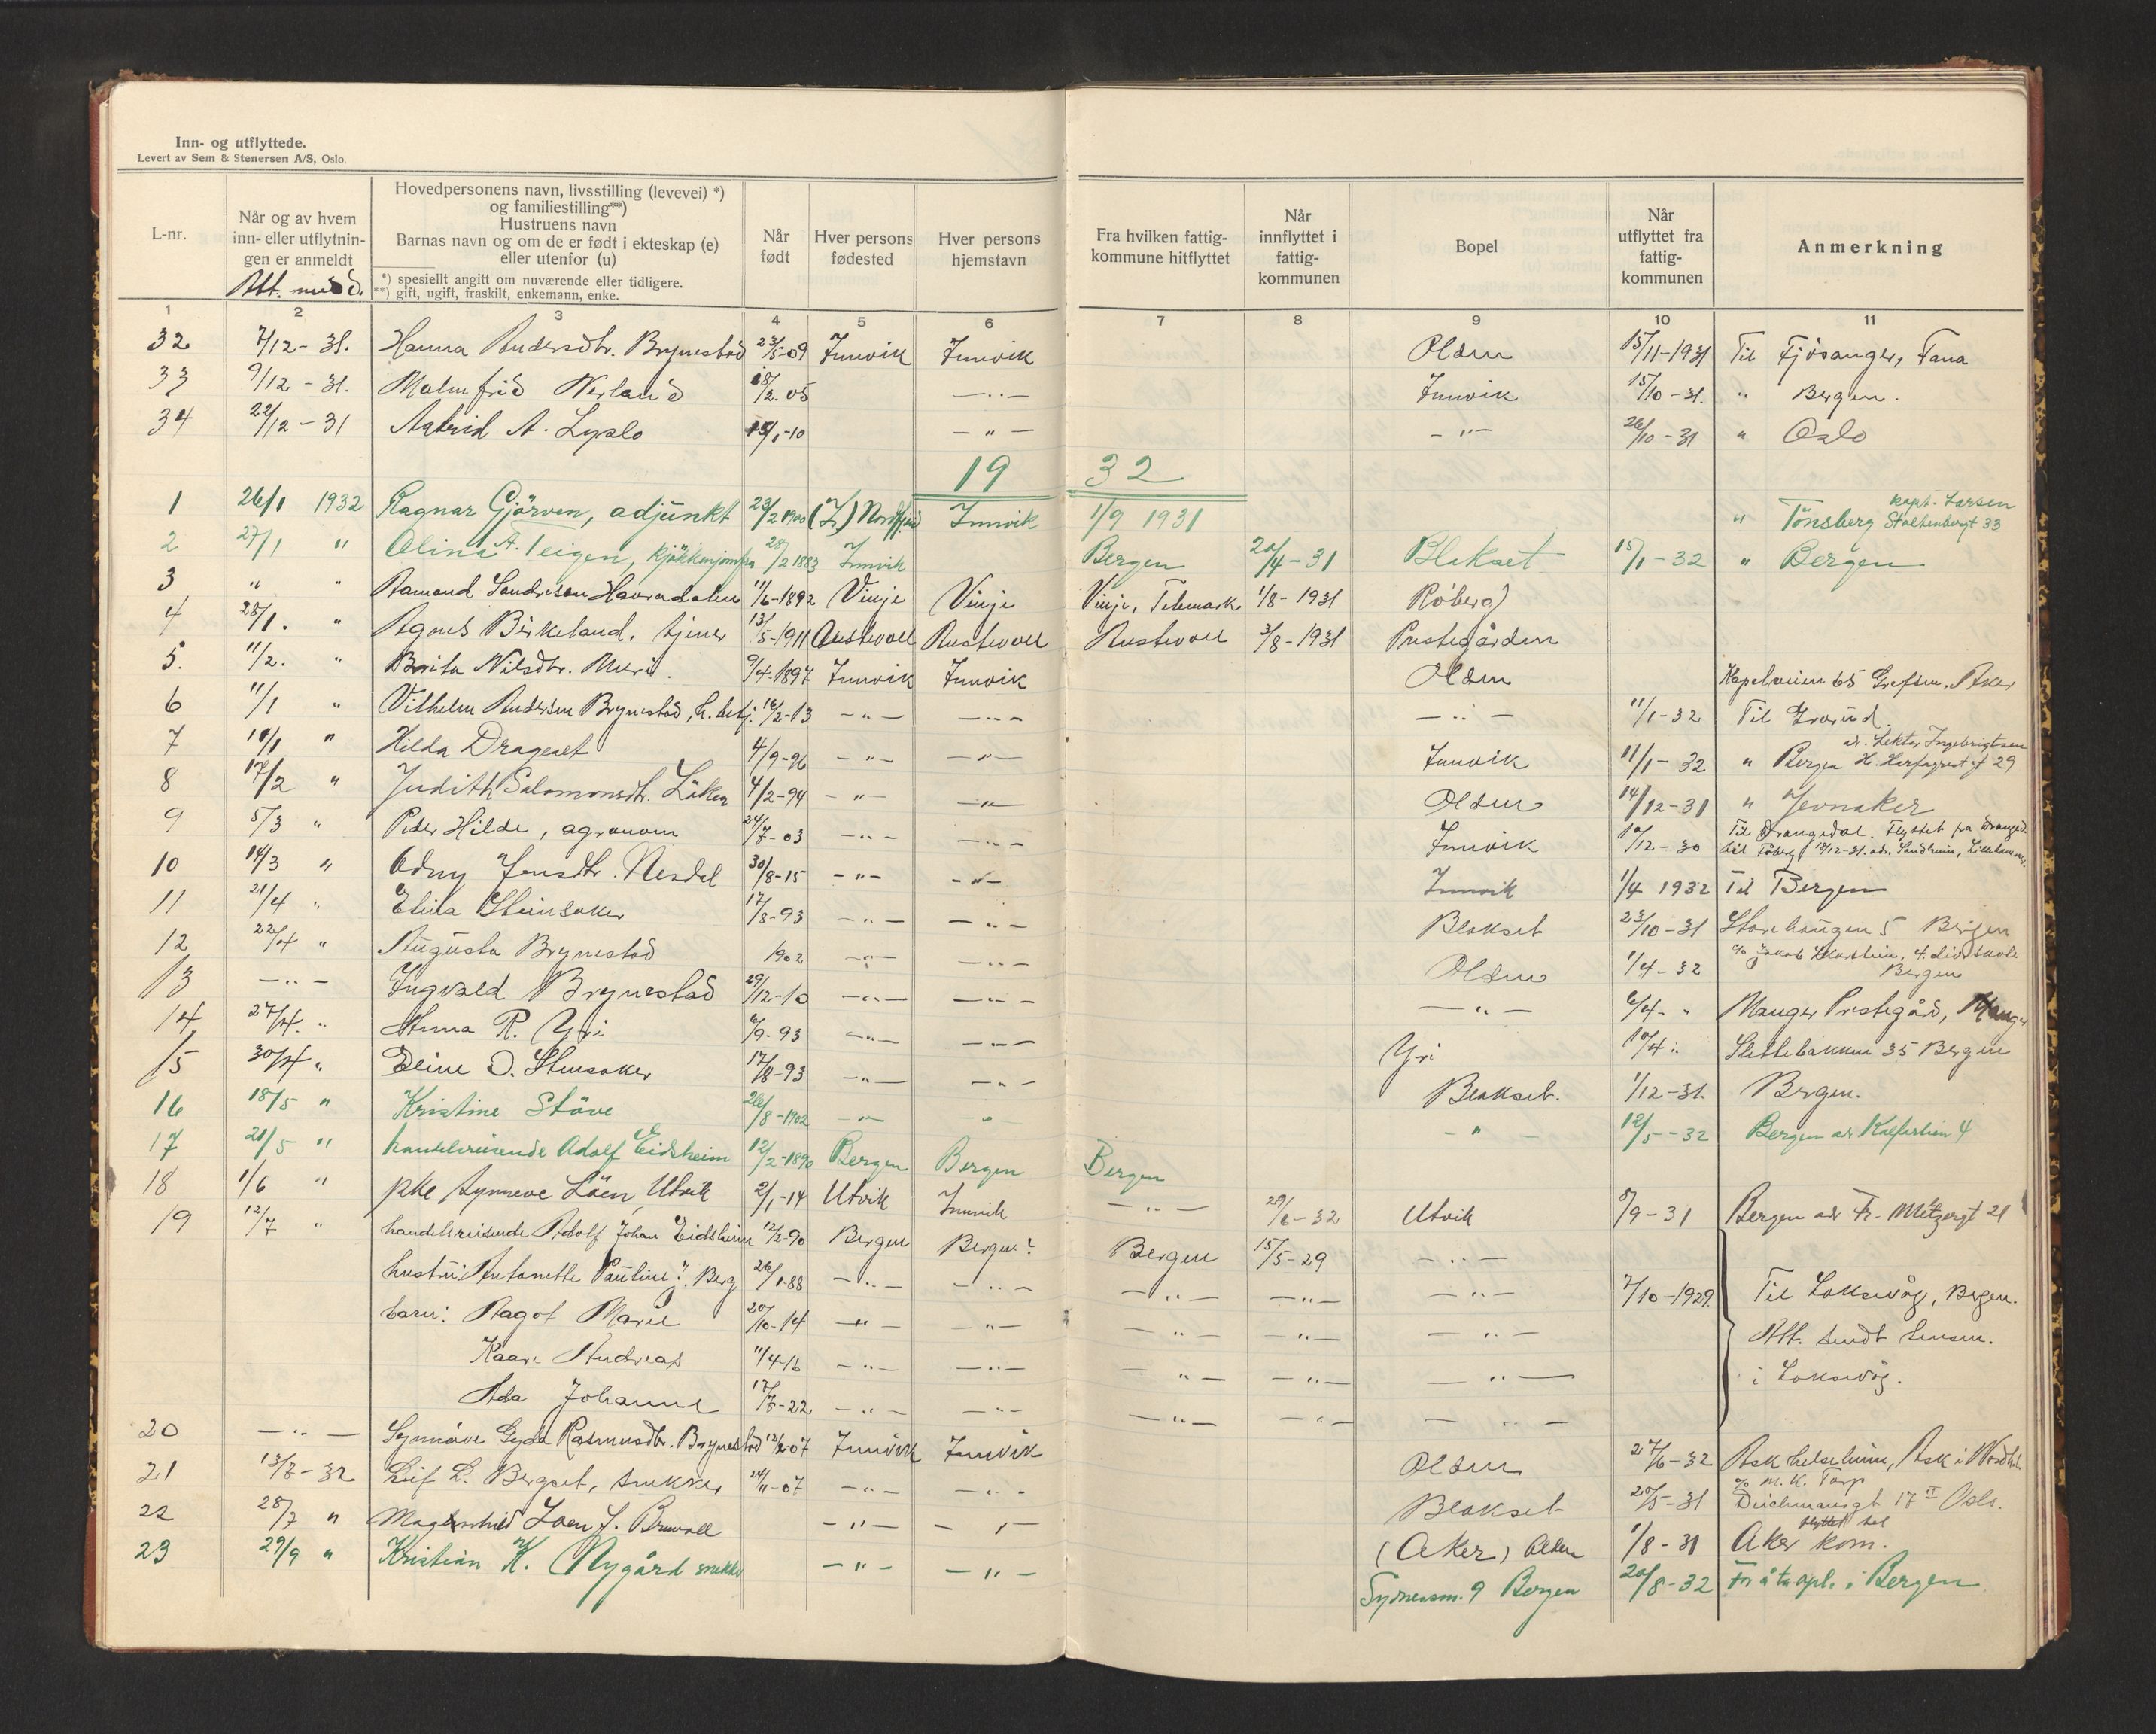 Inn- og utflyttede.
Levert av Sem & Stenersen A/S, Oslo.
L-nr.
Når og av hvem
inn- eller utflytnin-
gen er anmeldt
Att.
Hovedpersonens navn, livsstilling (levevei) *)
og familiestilling**)
Hustruens navn
Barnas navn og om de er født i ekteskap (e)
eller utenfor (u)
*) spesiellt angitt om nuværende eller tidligere.
**) gift, ugift, fraskilt, enkemann, enke.
Når
født
Hver persons
fødested
Hver persons
hjemstavn
Fra hvilken fattig-
kommune hitflyttet
Når
innflyttet i
fattig-
kommunen
Bopel
Når
utflyttet fra
fattig-
kommunen
Anmerkning
1 2 3 4 5 6 7 8 9 10 11
32 7/12 - 31. Hanna Andersdtr. Brynestad 23/5-09 Innvik Innvik Olden 15/11-1931 Til Fjösanger, Fana
33 9/12 - 31. Malmfrid Nerland 18/2.05 - " - Innvik 15/10-31. " Bergen.
34 22/12 - 31 Astrid A. Lyslo 15/1-10 - " - - " - 26/10-31 " Oslo
19 32
1 26/1 1932 Ragnar Gjörven, adjunkt 23/2 1900 Nordfjord Innvik 1/9 1931 " Tönsberg kapt. Larsen
Stoltenbergt 33
2 27/1 " Olina A. Teigen, 28/2 1883 Innvik Bergen 20/4-31 Blakset 15/1-32 " Bergen
3 " " Aamund Sondreson Havradalen 11/6-1892 Vinje Vinje Vinje, Telemark 1/8-1931 Röberg
4 28/1. " Agnes Birkeland, tjener 13/5-1911 Austevoll Austevoll Austevoll 3/8-1931 Prestegården
5. 11/2. " Brita Nilsdtr. Muri. 9/4-1897 Innvik Innvik Olden Kapelveien 65 Grefsen, Aker
6 11/1 " Vilhelm Andersen Brynestad, h.betj. 16/2-13 - " - - " - - " - 11/1-32 Til
7 11/1 " Hilda Drageset 4/9-96 - " - - " - Innvik 11/1-32 " Bergen ad. Lektor Ingebrigtsen
H. Harfagresgt 29
8 17/2 " Judith Salomonsdtr. Löken 4/2-94 - " - - " - Olden 14/12-31 " Jevnaker
9 5/3 " Peder Hilde, agronom 24/7-03 - " - - " - Innvik 10/12-30 Til Drangedal. Flyttet fra Dranged.
til Fåberg 12/12-31. adr. Sandheim, Lillehammer.
10 14/3 " Odny Jensdtr. Nesdal 30/8-15 - " - - " - Innvik 1/4 1932 Til Bergen
11 21/4 " Elina Steinsaker 17/8-93 - " - - " - Blakset 23/10-31 Storehaugen 5 Bergen
12 22/4 " Augusta Brynestad 1902 - " - - " - Olden 1/4-32 c/o Jakob
Bergen
13 - " - Ingvald Brynestad 29/12-10 - " - - " - - " - 6/4- " Manger Prestegård, Manger
14 27/4. " Anna R. Yri 6/9-93 - " - - " - Yri 10/4 " Slettebakken 35 Bergen
15 30/4 " Eline D. Stensaker 17/8-93 - " - - " - Blakset. 1/12-31. Bergen.
16 18/5 " Kristine Støve 26/8-1902 - " - " - " - 12/5-32 Bergen adr Kalfarlien 4
17 21/5 " handelsreisende Adolf Eidsheim 12/2-1890 Bergen Bergen Bergen
18 1/6 " pke Synneve Löen, Utvik 2/1-14 Utvik Innvik - " - 29/6-32 Utvik 5/9-31 Bergen adr Fr. Meltzersgt 21
19 12/7 " handelsreisende Adolf Johan Eidsheim 12/2-90 Bergen Bergen? Bergen 15/5-29 - " -
hustru: Antonette Pauline J. Berg 26/1-88 - " - - " - - " - - " - - " - 7/10-1929. Til Laksevåg, Bergen.
barn: Aagot Marie 20/10-14 - " - - " - - " - - " - - " - Att. sendt lensm.
Kaare Andreas 11/4-16 - " - - " - - " - - " - - " - i Laksevåg.
Ada Johanne 17/7-22. - " - - " - - " - - " - - " -
20 - " - Synnöve Gyda Rasmusdtr. Brynestad 07 Innvik Innvik Olden 27/6-32 Ask helseheim, Ask i
21 13/7-32 Leif L. Bergset, snekker 24/11-07 - " - - " - Blakset 20/5-31 c/o M. K. Torp
Deichmansgt 17 II Oslo.
22 28/7 " Loen f. - " - - " - (Aker) Olden 1/8-31 flyttet til
Aker kom.
23 29/9 " Kristian K. Nygård snekker - " - - " - Sydnessm. 9 Bergen 20/8-32 For å ta opl. i Bergen